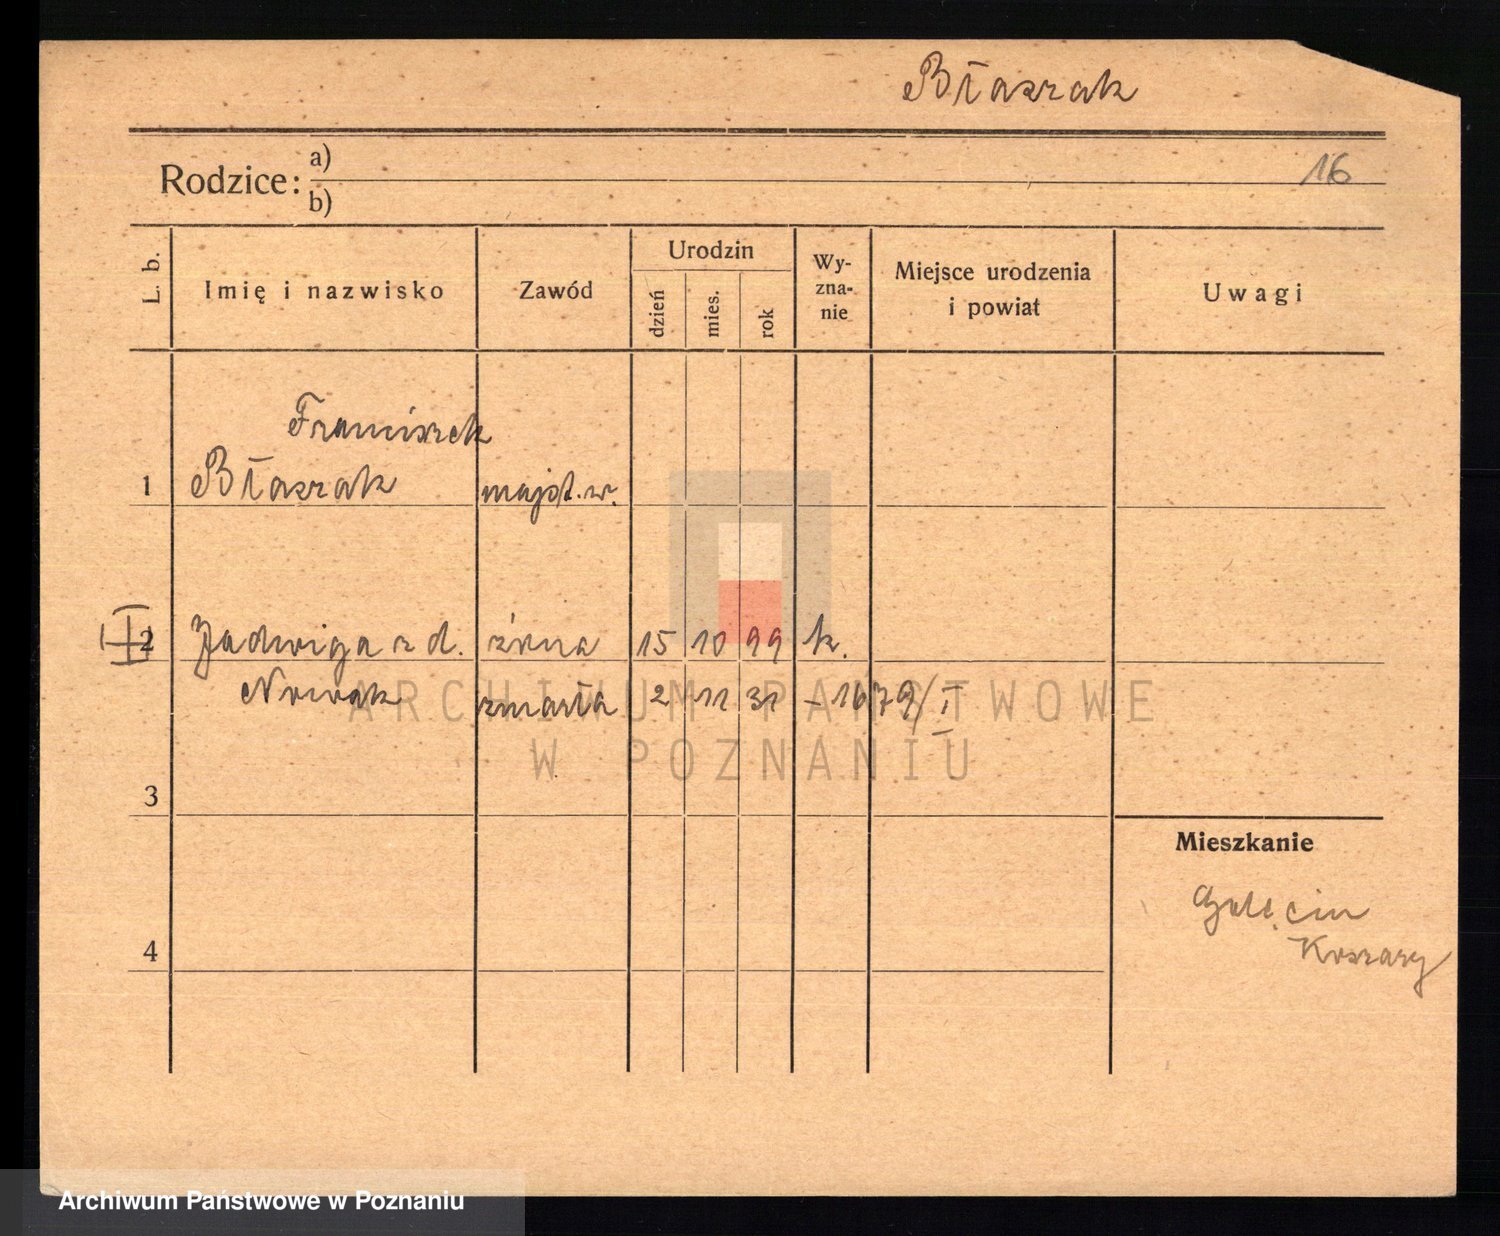 Błaszak
Rodzice: a)
16
b)
L. b.
Imię i nazwisko
Zawód
Urodzin
dzień
mies.
rok
Wy-
zna-
nie
Miejsce urodzenia
i powiat
Uwagi
Franciszek
1 Błaszak majst. w.
2 Jadwiga z d. żona 15 10 99 k.
Nowak zmarła 2 11 31 – 1679/I
3
Mieszkanie
Golęcin
Koszary
4
ARCHIWUM PAŃSTWOWE
W POZNANIU
Archiwum Państwowe w Poznaniu